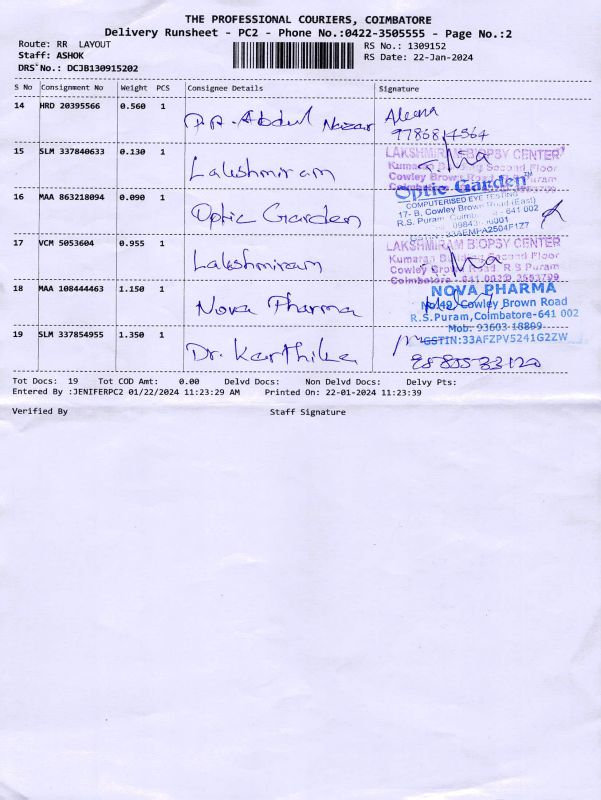 THE PROFESSIONAL COURIERS, COIMBATORE
Delivery Runsheet - PC2 - Phone No.:0422-3505555 - Page No.:2
Route: RR LAYOUT
RS No.: 1309152
Staff: ASHOK
RS Date: 22-Jan-2024
DRS No.: DCJB130915202
S No Consignment No Weight PCS Consignee Details Signature
14 HRD 20395566 0.560 1 Abdul Nazar Aleena
9786814564
15 SLM 337840633 0.130 1 Lakshmiram
LAKSHMIRAM BIOPSY CENTER
Second Floor
Cowley Brown Road, R.S Puram
16 MAA 863218094 0.090 1 Optic Garden
Optic Garden
COMPUTERISED EYE TESTING
17- B, Cowley Brown Road (East)
R.S. Puram, 641 002
17 VCM 5053604 0.955 1 Lakshmiram
LAKSHMIRAM BIOPSY CENTER
Second Floor
Cowley Road, R S Puram
18 MAA 108444463 1.150 1 Nova Pharma
NOVA PHARMA
Cowley Brown Road
R.S.Puram,Coimbatore-641 002
Mob. 93603 18899
GSTIN:33AFZPV5241G2ZW
19 SLM 337854955 1.350 1 Dr. Karthika
Tot Docs: 19 Tot COD Amt: 0.00 Delvd Docs: Non Delvd Docs: Delvy Pts:
Entered By :JENIFERPC2 01/22/2024 11:23:29 AM Printed On: 22-01-2024 11:23:39
Verified By Staff Signature